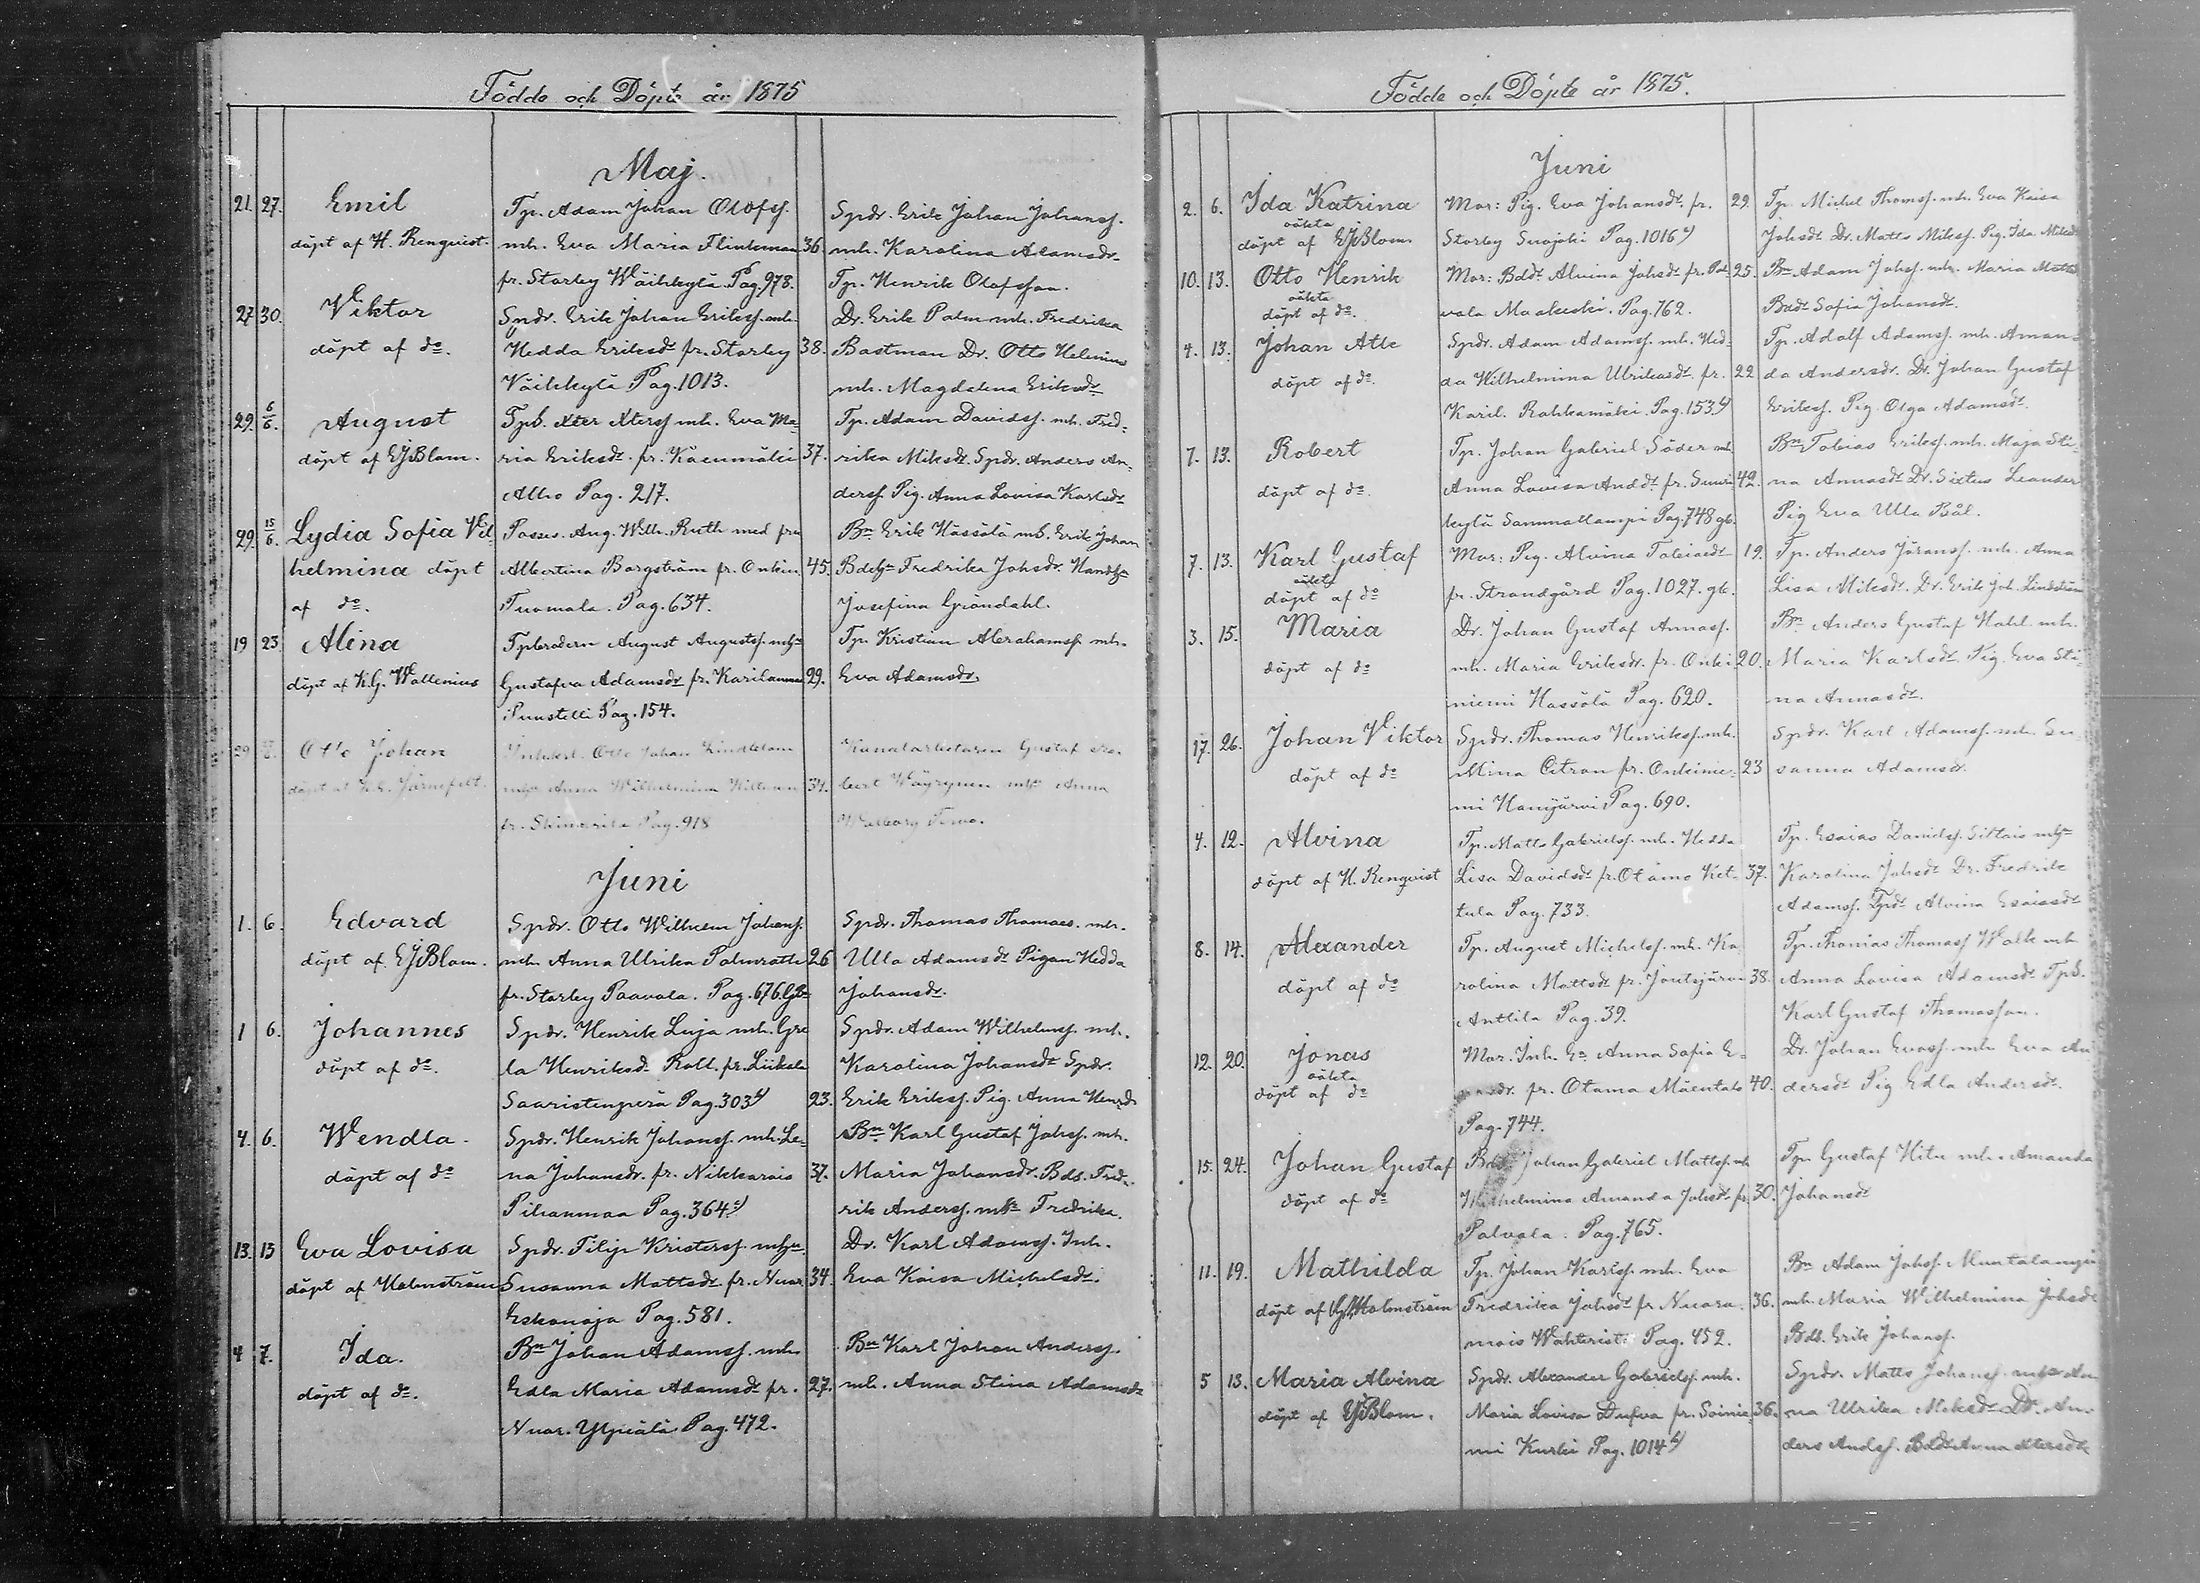 Födde och Döpte år 1875
Maj.
21. 27. Emil Tp. Adam Johan Olofss. Spdr. Erik Johan Johanss.
döpt af H. Renqvist. mh. Eva Maria Flinkman 36 mh. Karolina Adamsdr.
fr. Starby Wäihkylä. Pag. 978. Tp. Henrik Olofsson.
27 30. Viktor Spdr. Erik Johan Erikss. mh. Dr. Erik Palm mh. Fredrika
döpt af do. Hedda Eriksdr fr. Starby 38. Bastman Dr. Otto Helenius
Väihkylä Pag. 1013. mh. Magdalena Eriksdr
29. 6/6. August Tpb. Mter Mterss mh. Eva Ma- Tp. Adam Davidss. mh. Fred-
döpt af EJBlom. ria Eriksdr. fr. Käenmäki 37. rika Miksdr. Spdr. Anders An-
Alho Pag. 217. derss. Pig. Anna Lovisa Karlsdr
29. 15/6. Lydia Sofia Vil- Posses. Aug. Wilh. Ruth med fru Bn Erik Hässölä mh. Erik Johan
helmina döpt Albertina Borgström fr. Onkin 45. Fredrika Johsdr.
af do. Tuomala. Pag. 634. Josefina Gröndahl.
19 23. Alina Tpbrodern August Augustss. mhu Tp. Kristian Abrahamss. mh.
döpt af K.G. Wallenius Gustafva Adamsdr fr. Karilanmaa 29. Eva Adamsdr
Puustelli Pag. 154.
29 Otto Johan Inhkarl. Otto Johan Lindblom Kanalarbetaren Gustaf
döpt af Järnefelt. mhu Anna Wilhelmina 34. bert Wäyrynen mhu Anna
fr. Skinnarila Pag. 918 Walborg
Juni
1. 6. Edvard Spdr. Otto Wilhelm Johanss. Spdr. Thomas Thomass. mh.
döpt af EJBlom. mh. Anna Ulrika Palmroth 26 Ulla Adamsdr Pigan Hedda
fr. Starby Paavola. Pag. 676. Johansdr.
1 6. Johannes Spdr. Henrik Luja mh. Gre Spdr. Adam Wilhelmss. mh.
döpt af do. ta Henriksdr Roth. fr. Liikala Karolina Johansdr Spdr.
Saaristenperä Pag. 303 23. Erik Erikss. Pig. Anna Henrdr
4. 6. Wendla. Spdr. Henrik Johanss. mh. Le- Bn. Karl Gustaf Johss. mh.
döpt af do na Johansdr. fr. Nikkarais 37. Maria Johansdr. Bds. Fred-
Pihanmaa Pag. 364 rik Anderss. mhu Fredrika.
13. 13 Eva Lovisa Spdr. Filip Kristerss. mhu. Dr. Karl Adamss. Inh.
döpt af Holmström Susanna Mattsdr. fr. Nuar. 34. Eva Kaisa Michelsdr.
Eskonoja Pag. 581.
4 7. Ida. Bn Johan Adamss. mh. Bn Karl Johan Anderss.
döpt af do. Edla Maria Adamsdr fr. 27. mh. Anna Stina Adamsdr
Nuar. Pag. 472.
Födde och Döpte år 1875.
Juni
2. 6. Ida Katrina Mor: Pig. Eva Johansdr. fr. 29. Tp. Michel Thomss. mh. Eva Kaisa
oäkta
döpt af EJBlom. Starby Suojoki Pag. 1016 Johsdr. Dr. Matts Mikss. Pig. Ida Miksdr
10. 13. Otto Henrik Mor: Bdsdr Alvina Johsdr fr. Pal- 25. Bn Adam Johss. mh. Maria Mattsdr
oäkta
döpt af do. vala Maakeski. Pag. 762. Bdsdr Sofia Johansdr.
4. 13. Johan Atle Spdr. Adam Adamss. mh. Hed- Tp. Adolf Adamss. mh. Aman-
döpt af do. da Wilhelmina Ulrikasdr. fr. 22 da Andersdr. Dr. Johan Gustaf
Karil. Rahkamäki Pag. 153. Erikss. Pig. Olga Adamsdr.
7. 13. Robert Tp. Johan Gabriel Söder mh. Bn Tobias Erikss. mh. Maja Sti-
döpt af do. Anna Lovisa Anddr. fr. Suuri 42. na Annasdr. Dr. Sixtus Leander
kylä Sammallampi Pag. 748 gb. Pig Eva Ulla Pål.
7. 13. Karl Gustaf Mor: Pig. Alvina Tobiaedr 19. Tp. Anders Jöranss. mh. Anna
oäkta
döpt af do fr. Strandgård Pag. 1027. gb. Lisa Miksdr. Dr. Erik Joh. Lindström
3. 15. Maria Dr. Johan Gustaf Annass. Bn Anders Gustaf Hahl mh.
döpt af do mh. Maria Eriksdr. fr. Onki 20. Maria Karlsdr. Pig. Eva Sti-
niemi Hassölä Pag. 620. na Annasdr.
17. 26. Johan Viktor Spdr. Thomas Henrikss. mh. Spdr. Karl Adamss. mh. Su-
döpt af do Mina Citron fr. Onkinie- 23 sanna Adamsdr.
mi Hanijärvi Pag. 690.
4. 12. Alvina Tp. Matts Gabrielss. mh. Hedda Tp. Esaias Davidss. mhu
döpt af H. Renqvist Lisa Davidsdr fr. Otamo Ket- 37. Karolina Johsdr Dr. Fredrik
tula Pag. 733. Adamss. Tpdr. Alvina Esaiasdr
8. 14. Alexander Tp. August Michelss. mh. Ka- Tp. Thomas Thomass Walk mh.
döpt af do rolina Mattsdr fr. Joutsjärvi 38. Anna Lovisa Adamsdr Tpb.
Anttila Pag. 39. Karl Gustaf Thomasson.
12. 20. Jonas Mor. Inh. En Anna Sofia E- Dr. Johan Evass. mh. Eva An-
oäkta
döpt af do fr. Otamo Mäentalo 40. dersdr Pig Edla Andersdr.
Pag. 744.
15. 24. Johan Gustaf Johan Gabriel Mattss. mh. Tp. Gustaf Hitu mh. Amanda
döpt af do Wilhelmina Amanda Johsdr fr. 30. Johansdr
Palvala. Pag. 765.
11. 19. Mathilda Tp. Johan Karlss. mh. Eva Bn Adam Johss.
döpt af Holmström Fredrika Johsdr fr Nuara- 36. mh. Maria Wilhelmina Johsdr
mois Wahterist. Pag. 452. Bds. Erik Johanss.
5 13. Maria Alvina Spdr. Alexander Gabrielss. mh. Spdr. Matts Johanss. mhu An-
döpt af EJBlom. Maria Lovisa Dufva fr. Soinie- 36. na Ulrika Miksdr Dr. An-
mi Kurki Pag. 1014 ders Andss. Bdsdr Anna Mtersdr